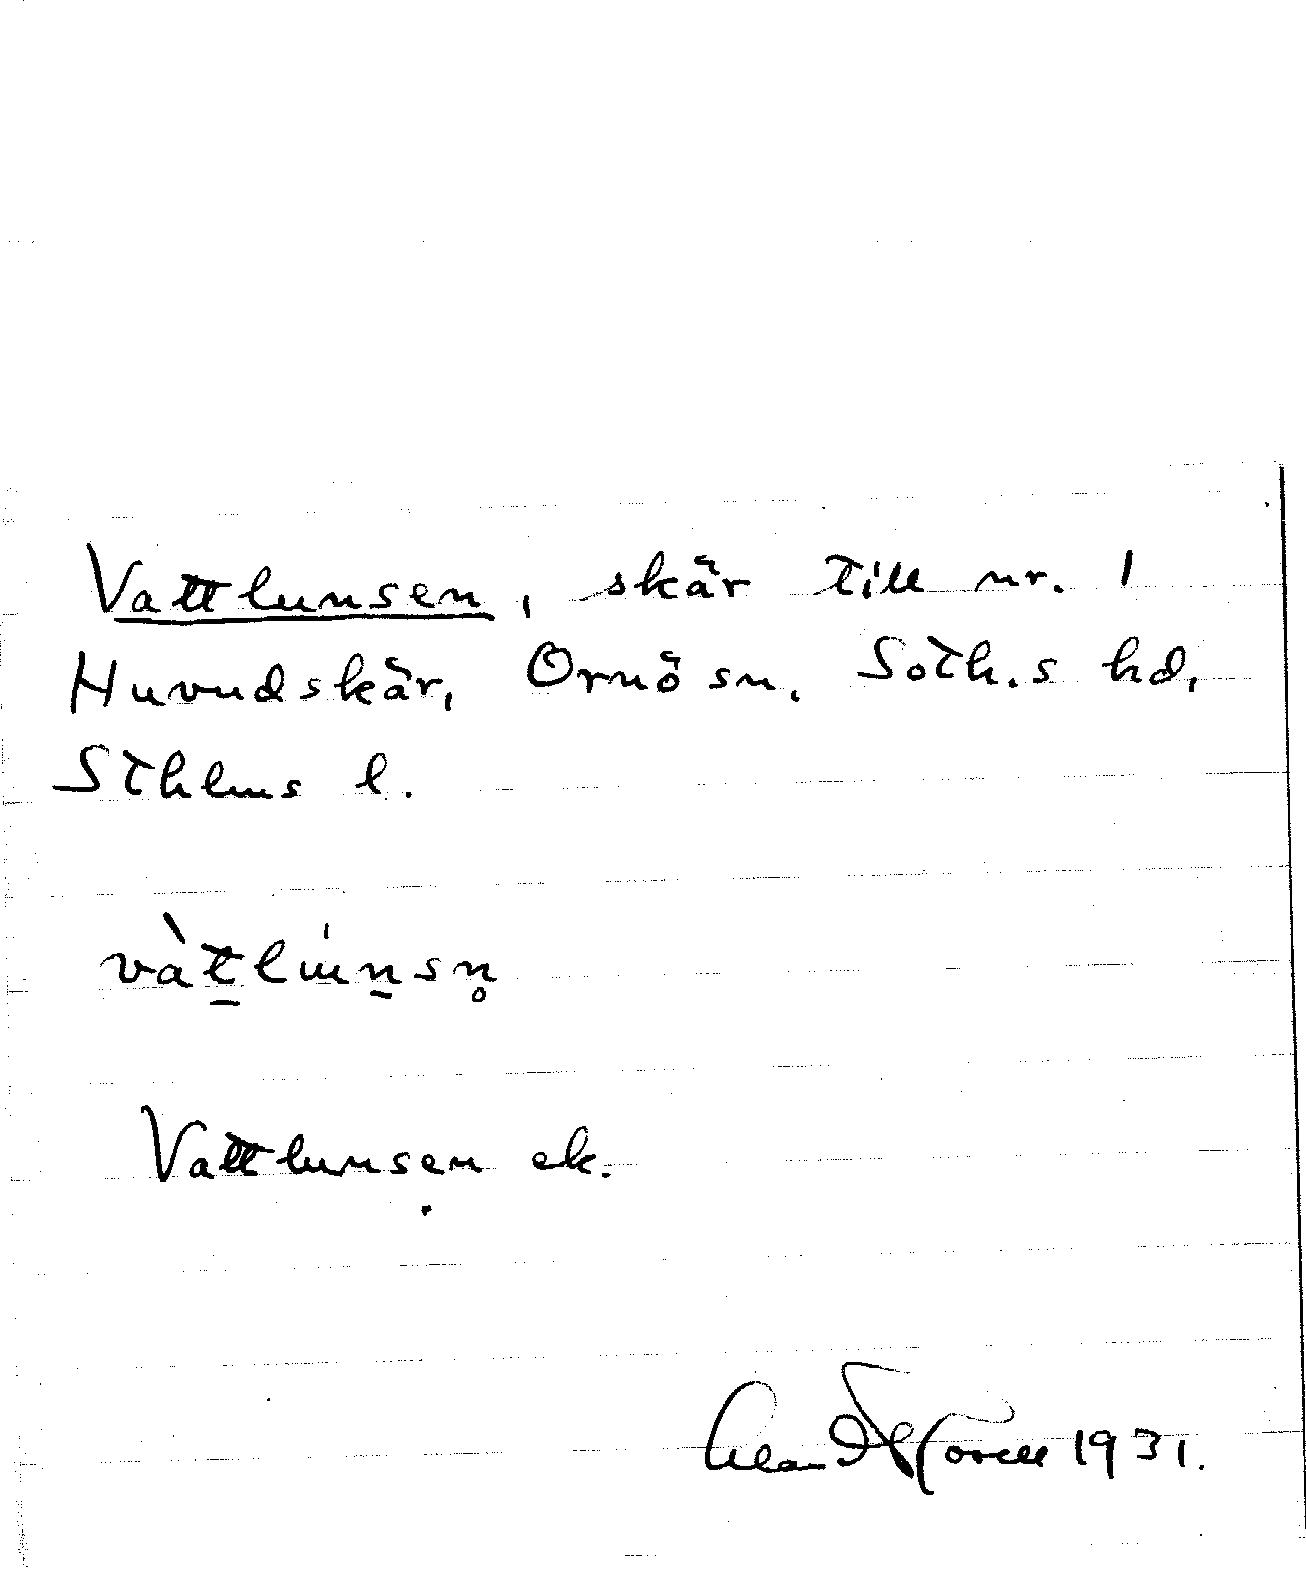 Vattlunsen, skär till nr. 1
Huvudskär, Ornö sn. Soth.s hd,
Sthlms l.
vàt̲lu̍n̲sn̥
Vattlunsen ek.
1931.